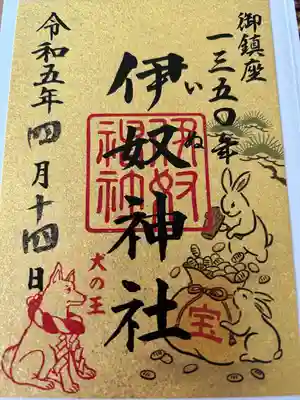 御鎮座
一三五〇年
伊奴神社
いぬ
伊奴神社
令和五年四月十四日
犬の王
宝